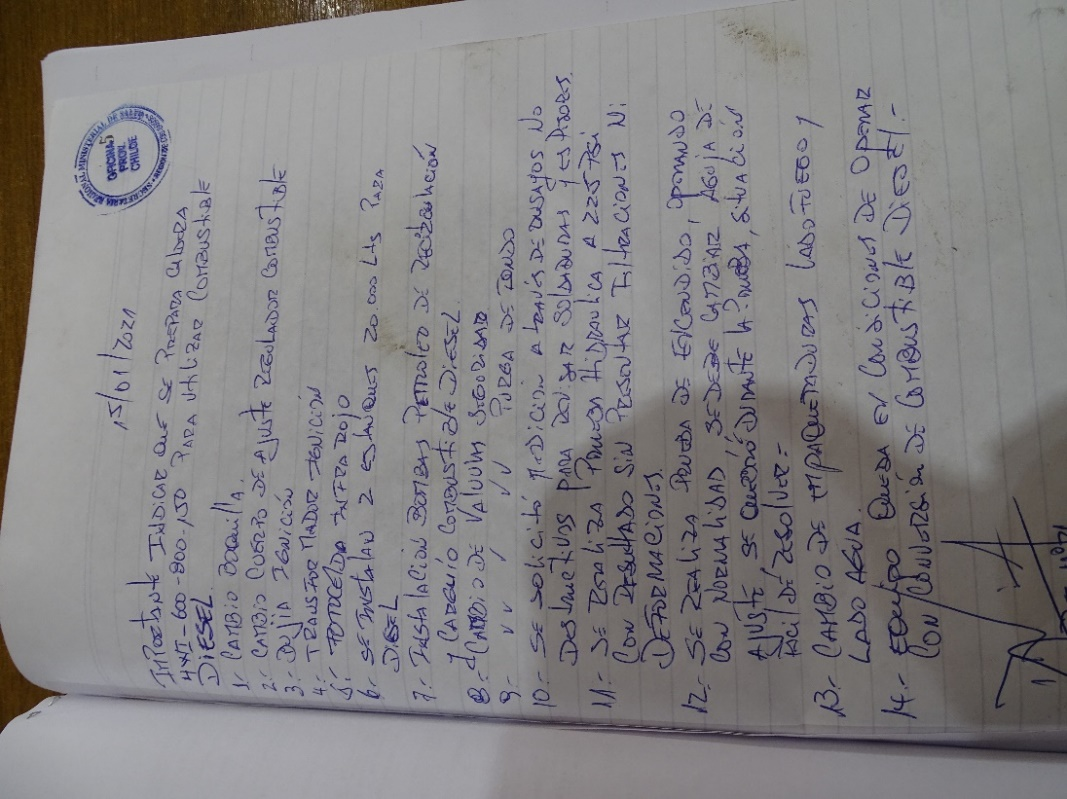 SECRETARIA REGIONAL MINISTERIAL DE SALUD
OFICINA
PROV.
CHILOE
15/01/2021
IMPORTANTE INDICAR QUE SE PREPARA CALDERA
4WI-600-800-150 PARA UTILIZAR COMBUSTIBLE
DIESEL.
1.- CAMBIO BOQUILLA.
2.- CAMBIO CUERPO DE AJUSTE REGULADOR COMBUSTIBLE
3.- BUJIA IGNICIÓN
4.- TRANSFORMADOR IGNICIÓN
5.- FOTOCELDA INFRA ROJO
6.- SE INSTALAN 2 ESTANQUES 20 000 Lts PARA
DIESEL
7.- INSTALACION BOMBAS PETROLEO DE RECIRCULACIÓN
Y CARGUIO COMBUSTIBLE DIESEL
8.- CAMBIO DE VALVULAS SEGURIDAD
9.- '' '' '' PURGA DE FONDO
10.- SE SOLICITÓ MEDICION A TRAVÉS DE ENSAYOS NO
DESTRUCTIVOS PARA REVISAR SOLDADURAS Y ESPESORES.
11.- SE REALIZA PRUEBA HIDRAULICA A 225 PSI
CON RESULTADO SIN PRESENTAR FILTRACIONES NI
DEFORMACIONES.
12.- SE REALIZA PRUEBA DE ENCENDIDO, OPERANDO
CON NORMALIDAD SE DEBE CAMBIAR AGUJA DE
AJUSTE SE QUEBRÓ DURANTE LA PRUEBA, SITUACIÓN
FACIL DE RESOLVER.-
13.- CAMBIO DE EMPAQUETADURAS LADO FUEGO Y
LADO AGUA.
14.- EQUIPO QUEDA EN CONDICIONES DE OPERAR
CON CONVERSIÓN DE COMBUSTIBLE DIESEL.-